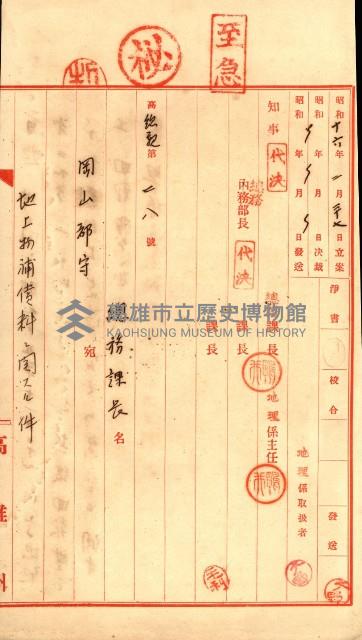 至急
秘
昭和十六年一月 日立案
昭和 年 月 日決裁
昭和 年 月 日發送
淨書
校合
發送
知事
代決
總務
內務部長
代決
總務課長
課長
課長
地理係主任
地理係取扱者
高總記第二八號
總務課長名
岡山郡守
宛
地上物補償料ニ関スル件
高雄州
高雄市立歷史博物館
KAOHSIUNG MUSEUM OF HISTORY